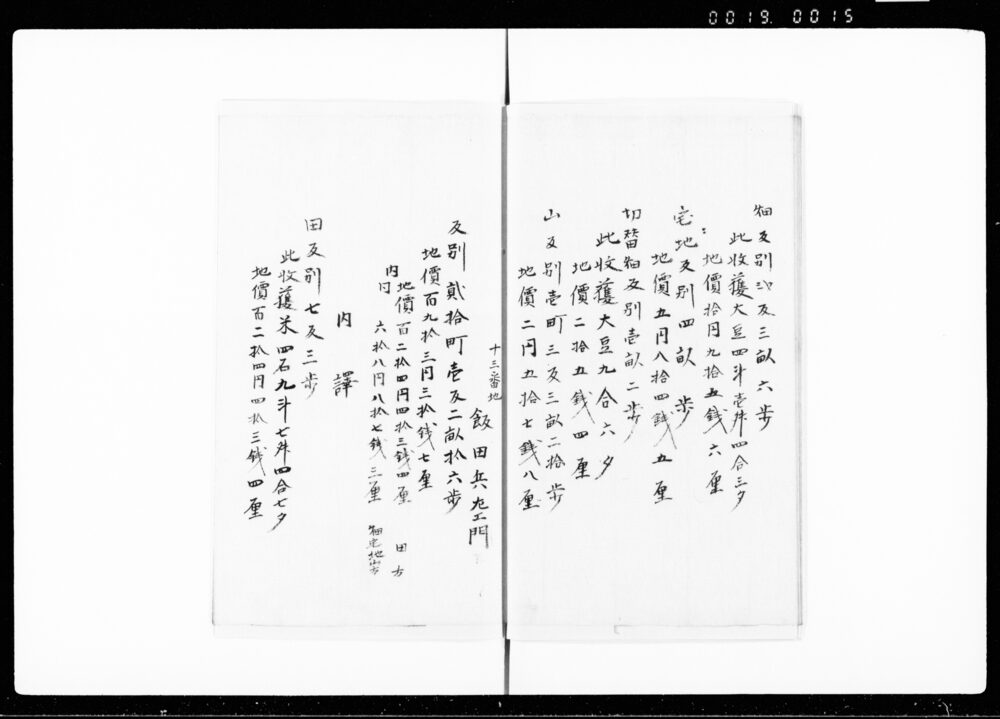 0019.0015
畑反別三反三畝六歩
此收獲大豆四斗壱升四合三夕
地價拾円九拾五銭六厘
宅地反別四畝歩
地價五円八拾四銭五厘
切替畑反別壱畝二歩
此收獲大豆九合六夕
地價二拾五銭四厘
山反別壱町三反三畝二拾歩
地價二円五拾七銭八厘
十三番地
飯田兵左エ門
反別貳拾町壱反二畝拾六歩
地價百九拾三円三拾銭七厘
内
地價百二拾四円四拾三銭四厘 田方
円六拾八円八拾七銭三厘 畑宅地山方
内譯
田反別七反三歩
此收獲米四石九斗七升四合七夕
地價百二拾四円四拾三銭四厘